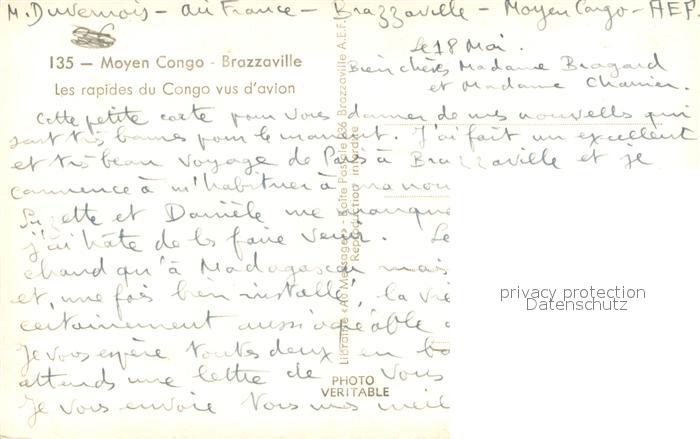 M. Duvernois - Air France - Brazzaville - Moyen Congo - AEF
135 — Moyen Congo - Brazzaville
Les rapides du Congo vus d'avion
Le 18 Mai.
Bien chères Madame Bragard
et Madame Charrier.
Cette petite carte pour vous donner de mes nouvelles qui
sont très bonnes pour le moment. J'ai fait un excellent
et très beau voyage de Paris à Brazzaville et je
commence à m'habituer à ma nou
Suzette et Danièle me manque
j'ai hâte de les faire venir. Le
chaud qu'à Madagascar mais
et, une fois bien installé, la vie
certainement aussi agréable
Je vous espère toutes deux en bo
attends une lettre de vous
Je vous envoie à vous mes meil
Librairie «Au Messager» - Boîte Postale 236 Brazzaville A.E.F.
Reproduction interdite
PHOTO
VERITABLE
privacy protection
Datenschutz